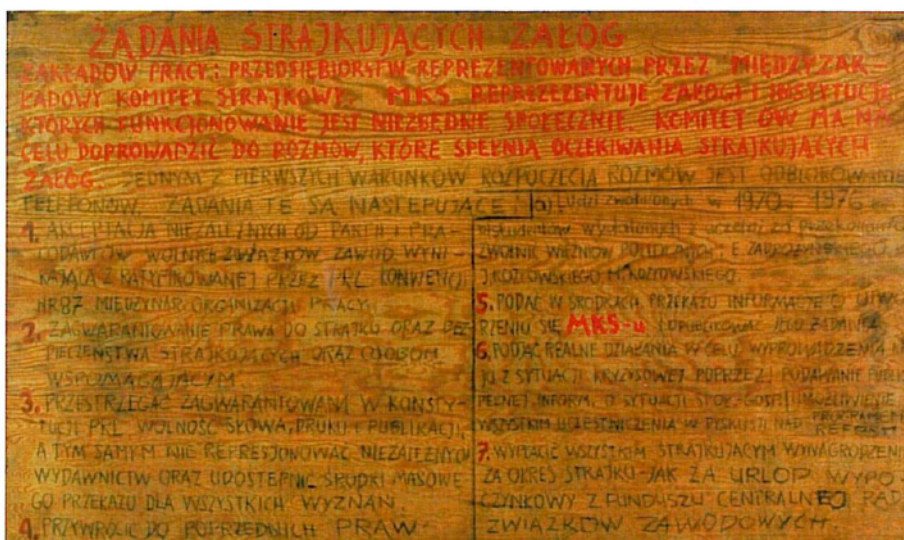 ŻĄDANIA STRAJKUJĄCYCH ZAŁÓG
ZAKŁADÓW PRACY i PRZEDSIĘBIORSTW REPREZENTOWANYCH PRZEZ MIĘDZYZAK-
ŁADOWY KOMITET STRAJKOWY. MKS REPREZENTUJE ZAŁOGI I INSTYTUCJE
KTÓRYCH FUNKCJONOWANIE JEST NIEZBĘDNE SPOŁECZNIE. KOMITET ÓW MA NA
CELU DOPROWADZIĆ DO ROZMÓW, KTÓRE SPEŁNIĄ OCZEKIWANIA STRAJKUJĄCYCH
ZAŁÓG. JEDNYM Z PIERWSZYCH WARUNKÓW ROZPOCZĘCIA ROZMÓW JEST ODBLOKOWANIE
TELEFONÓW. ŻĄDANIA TE SĄ NASTĘPUJĄCE:
1. AKCEPTACJA NIEZALEŻNYCH OD PARTII I PRA-
CODAWCÓW WOLNYCH ZWIĄZKÓW ZAWOD WYNI-
KAJĄCA Z RATYFIKOWANEJ PRZEZ PRL KONWENCJI
NR 87 MIĘDZYNAR. ORGANIZACJI PRACY
2. ZAGWARANTOWANIE PRAWA DO STRAJKU ORAZ BEZ
PIECZEŃSTWA STRAJKUJĄCYCH ORAZ OSOBOM
WSPOMAGAJĄCYM.
3. PRZESTRZEGAĆ ZAGWARANTOWANĄ W KONSTY-
TUCJI PRL WOLNOŚĆ SŁOWA, DRUKU I PUBLIKACJI,
A TYM SAMYM NIE REPRESJONOWAĆ NIEZALEŻNYCH
WYDAWNICTW ORAZ UDOSTĘPNIĆ ŚRODKI MASOWE
GO PRZEKAZU DLA WSZYSTKICH WYZNAŃ.
4. PRZYWRÓCIĆ DO POPRZEDNICH PRAW-
a) Ludzi zwolnionych w 1970 i 1976
studentów wydalonych z uczelni za przekonania
ZWOLNIĆ WIĘŹNIÓW POLITYCZNYCH: E. ZADROŻYŃSKIEGO
J. KOZŁOWSKIEGO M. KOZŁOWSKIEGO.
5. PODAĆ W ŚRODKACH PRZEKAZU INFORMACJĘ O UTWO
RZENIU SIĘ MKS-u I OPUBLIKOWAĆ JEGO ŻĄDANIA
6. PODJĄĆ REALNE DZIAŁANIA W CELU WYPROWADZENIA KRA
JU Z SYTUACJI KRYZYSOWEJ POPRZEZ: PODAWANIE PUBLI
PEŁNEJ INFORM. O SYTUACJI SPOŁ-GOSP. UMOŻLIWIENIE
WSZYSTKIM UCZESTNICZENIA W DYSKUSJI NAD PROGRAMEM
REFORM
7. WYPŁACIĆ WSZYSTKIM STRAJKUJĄCYM WYNAGRODZENIE
ZA OKRES STRAJKU-JAK ZA URLOP WYPO-
CZYNKOWY Z FUNDUSZU CENTRALNEJ RADY
ZWIĄZKÓW ZAWODOWYCH.